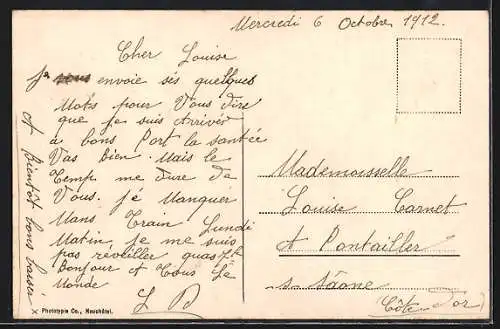 Mercredi 6 Octobre 1912.
Cher Louise
Je vous envoie sés quelques
Mots pour Vous dire
que je suis Arrivér
à bons Port la santée
Vas bien. Mais le
Temp me dure da
Vous. jé Manquer
Mans Train Lundi
Matin, je me suis
pas reveiller quas
Bonjour A Tous Le
Monde
L B
A Bientôt bons baisér
Mademoisselle
Louise Cornet
A Pontailler
s. Sâone
(Côte d'or)
Phototypie Co., Neuchâtel.